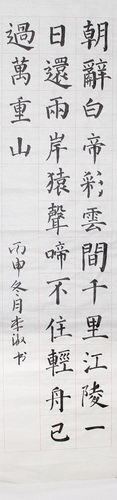 朝辭白帝彩雲間千里江陵一
日還兩岸猿聲啼不住輕舟已
過萬重山
丙申冬月李淑书